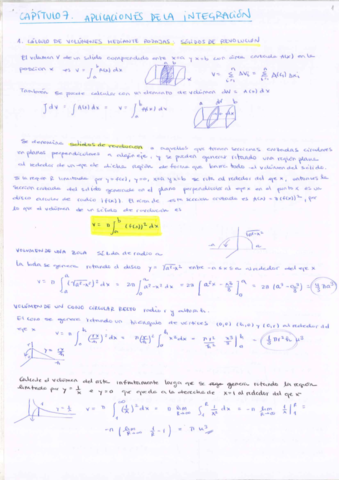 CAPÍTULO 7. APLICACIONES DE LA INTEGRACIÓN
1. CÁLCULO DE VOLÚMENES MEDIANTE RODAJAS. SÓLIDOS DE REVOLUCIÓN
El volumen V de un sólido comprendido entre x=a y x=b con área conocida A(x) en la
posición x es V = ∫ₐᵇ A(x) dx
También se puede calcular con el elemento de volumen dV = A(x) dx
∫dV = ∫A(x) dx → V = ∫ₐᵇ A(x) dx
Se denominan sólidos de revolución a aquellos que tienen secciones cruzadas circulares
en planos perpendiculares a algún eje, y se pueden generar rotando una región plana
al rededor de un eje de dicha región de forma que barra todo el volumen del sólido.
Si la región R limitada por y=f(x), y=0, x=a y x=b se rota al rededor del eje x, entonces la
sección cruzada del sólido generado en el plano perpendicular al eje x en el punto x es un
disco circular de radio |f(x)|. El área de esta sección cruzada es A(x) = π(f(x))², por
lo que el volumen de un sólido de revolución es
V = π ∫ₐᵇ (f(x))² dx
VOLUMEN DE UNA BOLA Sólida de radio a
La bola se genera rotando el disco y = √(a²-x²) entre -a ≤ x ≤ a al rededor del eje x
VOLUMEN DE UN CONO CIRCULAR RECTO radio r y altura h.
El cono se genera rotando un triángulo de vértices (0,0) (h,0) y (h,r) al rededor del
eje x
Calcule el volumen del asta infinitamente larga que se genera rotando la región
limitada por y = 1/x e y=0 que queda a la derecha de x=1 al rededor del eje x